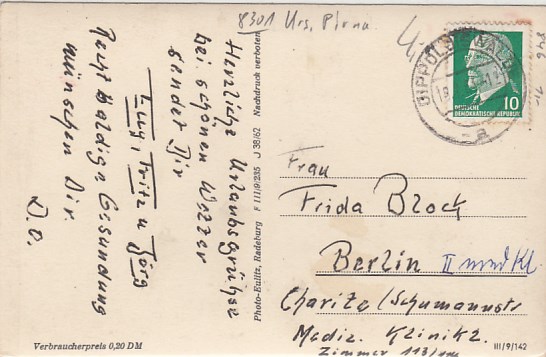 8301 Urs, Pirna
Herzliche Urlaubsgrüße
bei schönen Wetter
sendet Dir
Fritz u Jörg
Recht baldige Gesundung
wünschen Dir
D.O.
Photo-Eulitz, Radeburg F III/9/235 J 38/62 Nachdruck verboten
Verbraucherpreis 0,20 DM
DIPPOLDISWALDE
DEUTSCHE
DEMOKRATISCHE REPUBLIK
10
a
Frau
Frida Block
Berlin II
Charite/Schumannstr
Mediz. Klinik
Zimmer 113/114
III/9/142